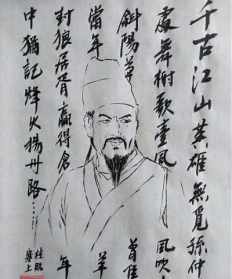 千古江山英雄無覓孫仲
處舞榭歌臺風吹
斜陽草
當年
封狼居胥贏得倉
年
中猶記烽火揚州路